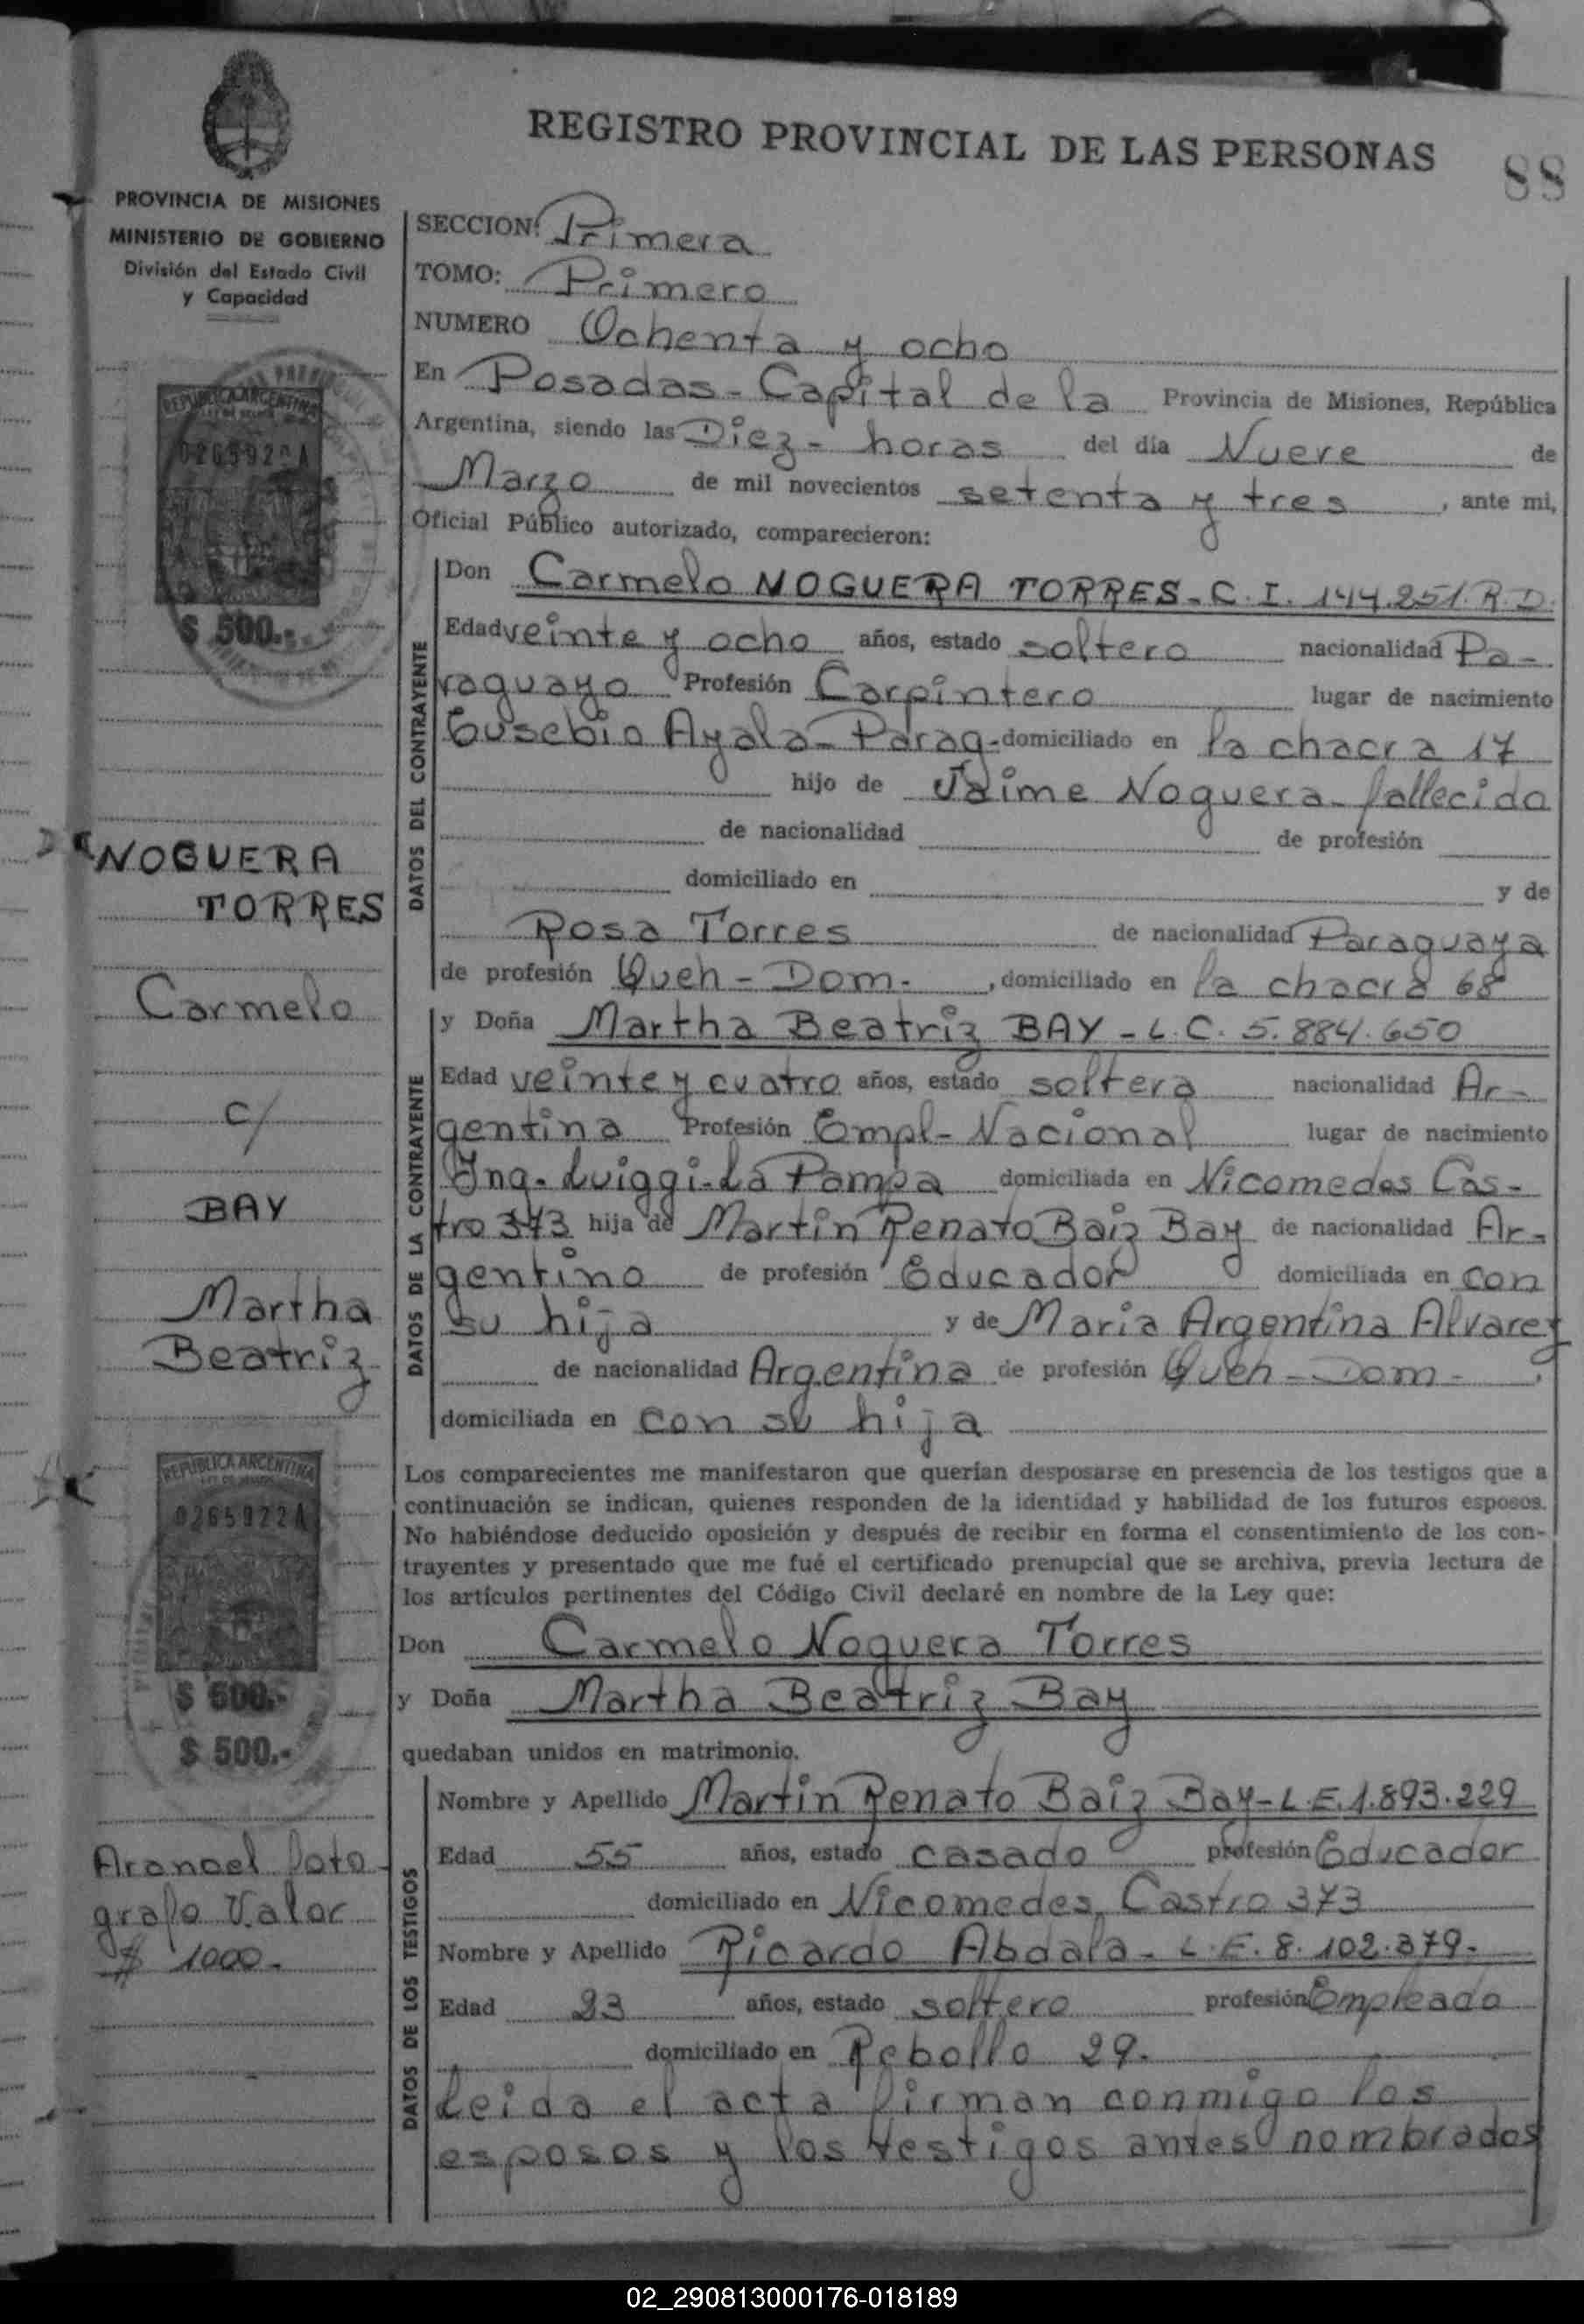 REGISTRO PROVINCIAL DE LAS PERSONAS
88
PROVINCIA DE MISIONES
MINISTERIO DE GOBIERNO
División del Estado Civil
y Capacidad
SECCION: Primera
TOMO: Primero
NUMERO Ochenta y ocho
En Posadas - Capital de la Provincia de Misiones, República
Argentina, siendo las Diez - horas del día Nueve de
Marzo de mil novecientos setenta y tres, ante mi,
Oficial Público autorizado, comparecieron:
REPUBLICA ARGENTINA
$ 500.-
NOGUERA
TORRES
Carmelo
c/
BAY
Martha
Beatriz
REPUBLICA ARGENTINA
0265922A
$ 500.-
$ 500.-
Arancel foto
grafo Valor
$ 1000.-
DATOS DEL CONTRAYENTE
Don Carmelo NOGUERA TORRES - C. I. 144.251. R. D.
Edad veinte y ocho años, estado soltero nacionalidad Pa-
raguayo Profesión Carpintero lugar de nacimiento
Eusebio Ayala - Parag - domiciliado en la chacra 17
hijo de Jaime Noguera - fallecido
de nacionalidad de profesión
domiciliado en y de
Rosa Torres de nacionalidad Paraguaya
de profesión Queh - Dom - , domiciliado en la chacra 68
DATOS DE LA CONTRAYENTE
y Doña Martha Beatriz BAY - L. C. 5.884.650
Edad veinte y cuatro años, estado soltera nacionalidad Ar-
gentina Profesión Empl - Nacional lugar de nacimiento
Ing. Luiggi - La Pampa domiciliada en Nicomedes Cas-
tro 373 hija de Martin Renato Baiz Bay de nacionalidad Ar-
gentino de profesión Educador domiciliada en con
su hija y de Maria Argentina Alvarez
de nacionalidad Argentina de profesión Queh - Dom - ,
domiciliada en con su hija
Los comparecientes me manifestaron que querían desposarse en presencia de los testigos que a
continuación se indican, quienes responden de la identidad y habilidad de los futuros esposos.
No habiéndose deducido oposición y después de recibir en forma el consentimiento de los con-
trayentes y presentado que me fué el certificado prenupcial que se archiva, previa lectura de
los artículos pertinentes del Código Civil declaré en nombre de la Ley que:
Don Carmelo Noguera Torres
y Doña Martha Beatriz Bay
quedaban unidos en matrimonio.
DATOS DE LOS TESTIGOS
Nombre y Apellido Martin Renato Baiz Bay - L. E. 1.893.229
Edad 55 años, estado casado profesión Educador
domiciliado en Nicomedes Castro 373
Nombre y Apellido Ricardo Abdala - L. E. 8.102.379.
Edad 23 años, estado soltero profesión Empleado
domiciliado en Rebollo 29.
Leida el acta firman conmigo los
esposos y los testigos antes nombrados
02_290813000176-018189